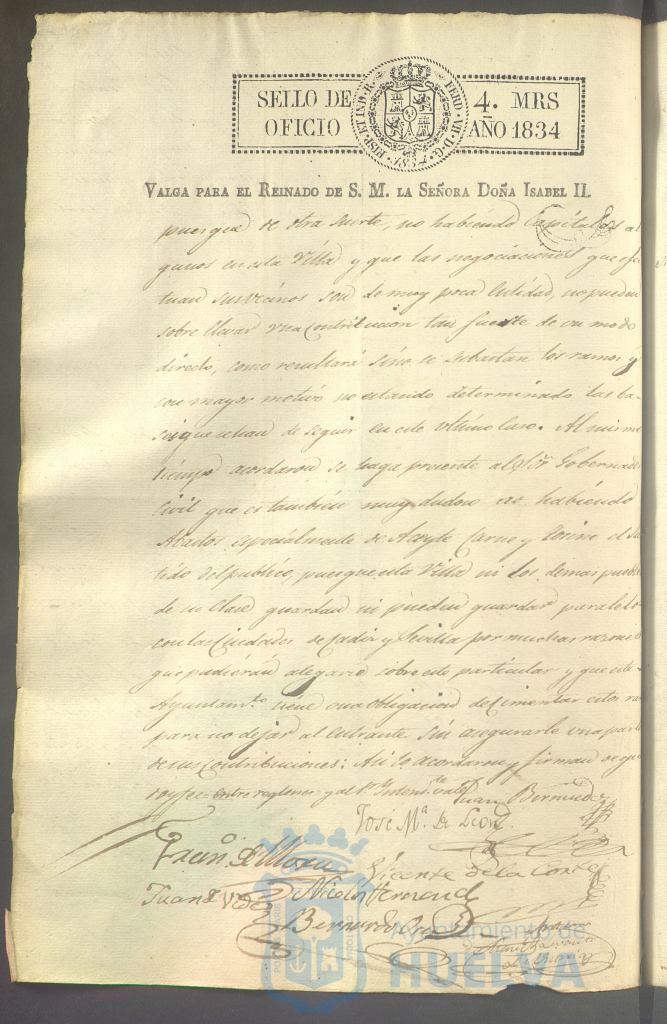 SELLO DE OFICIO
4. MRS AÑO 1834
HISP. ET IND. R. FERD. VII. D. G. 1834
VALGA PARA EL REINADO DE S. M. LA SEÑORA DOÑA ISABEL II.
puesque de otra suerte, no habiendo Capitales al
gunos en esta Villa y que las negociaciones que efec
tuan sus vecinos son de muy poca Entidad, no pueden
sobre llevar una Contribucion tan fuerte de un modo
directo, como resultará sino se subastan los ramos y
con mayor motivo no estando determinado las ba-
ses que se han de seguir en este ultimo Caso. Al mismo
tiempo acordaron se haga presente al Sor. Gobernador
Civil que es tambien muy dudoso no habiendo
Abastos especialmente de Aceyte Carne y tocino el Sur
tido del publico, puesque esta Villa ni los demas pueblos
de su Clase guardan ni pueden guardar paralelo
con las Ciudades de Cadiz y Sevilla por muchas razones
que pudieran alegarse sobre este particular y que este
Ayuntamto. tiene una obligacion de cimentar estos ra
para no dejar al Entrante sin asegurarle una parte
de sus Contribuciones: Asi lo acordaron y firman de que
doy fee = entre reglones = y al Sr. Intendte. vale
Juan Bermudez
José Ma. de Leon
Vicente de la Corte
Nicolas
Juan
Bernardo
Ayuntamiento de
HUELVA